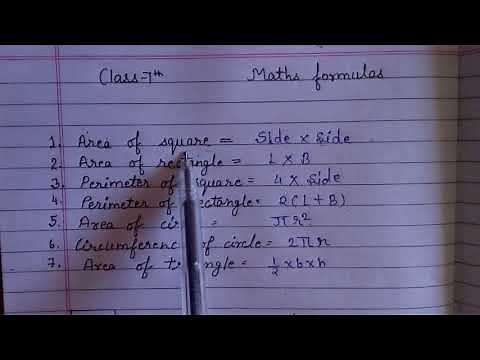 Class-7th Maths formulas
1. Area of square = Side x Side
2. Area of rectangle = L X B
3. Perimeter of square = 4 X Side
4. Perimeter of rectangle = 2(L+B)
5. Area of circle = πr²
6. Circumference of circle = 2πr
7. Area of triangle = 1/2 x b x h